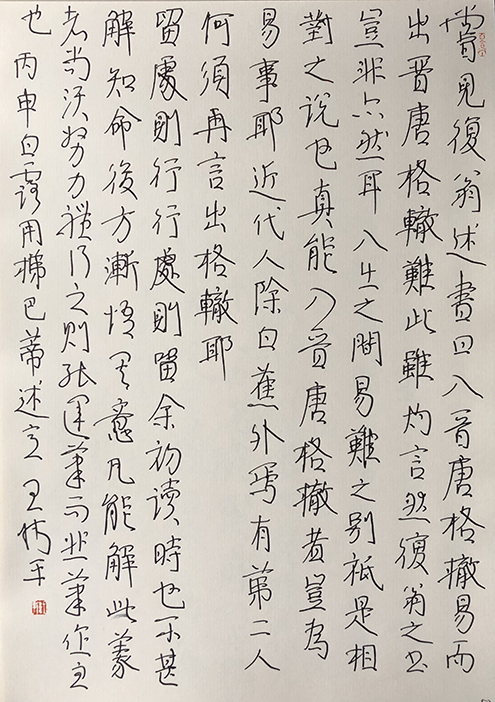 嘗見復翁述書曰入晉唐格轍易而
出晉唐格轍難此雖灼言然復翁之書
豈非亦然耳入出之間易難之別祇是相
對之说也真能入晉唐格撤者豈為
易事耶近代人除白蕉外焉有第二人
何須再言出格轍耶
留處則行行處則留余初读時也不甚
解知命後方漸悟其意凡能解此義
者尚須努力踐行之则
也丙申白露用梯巴蒂述之王